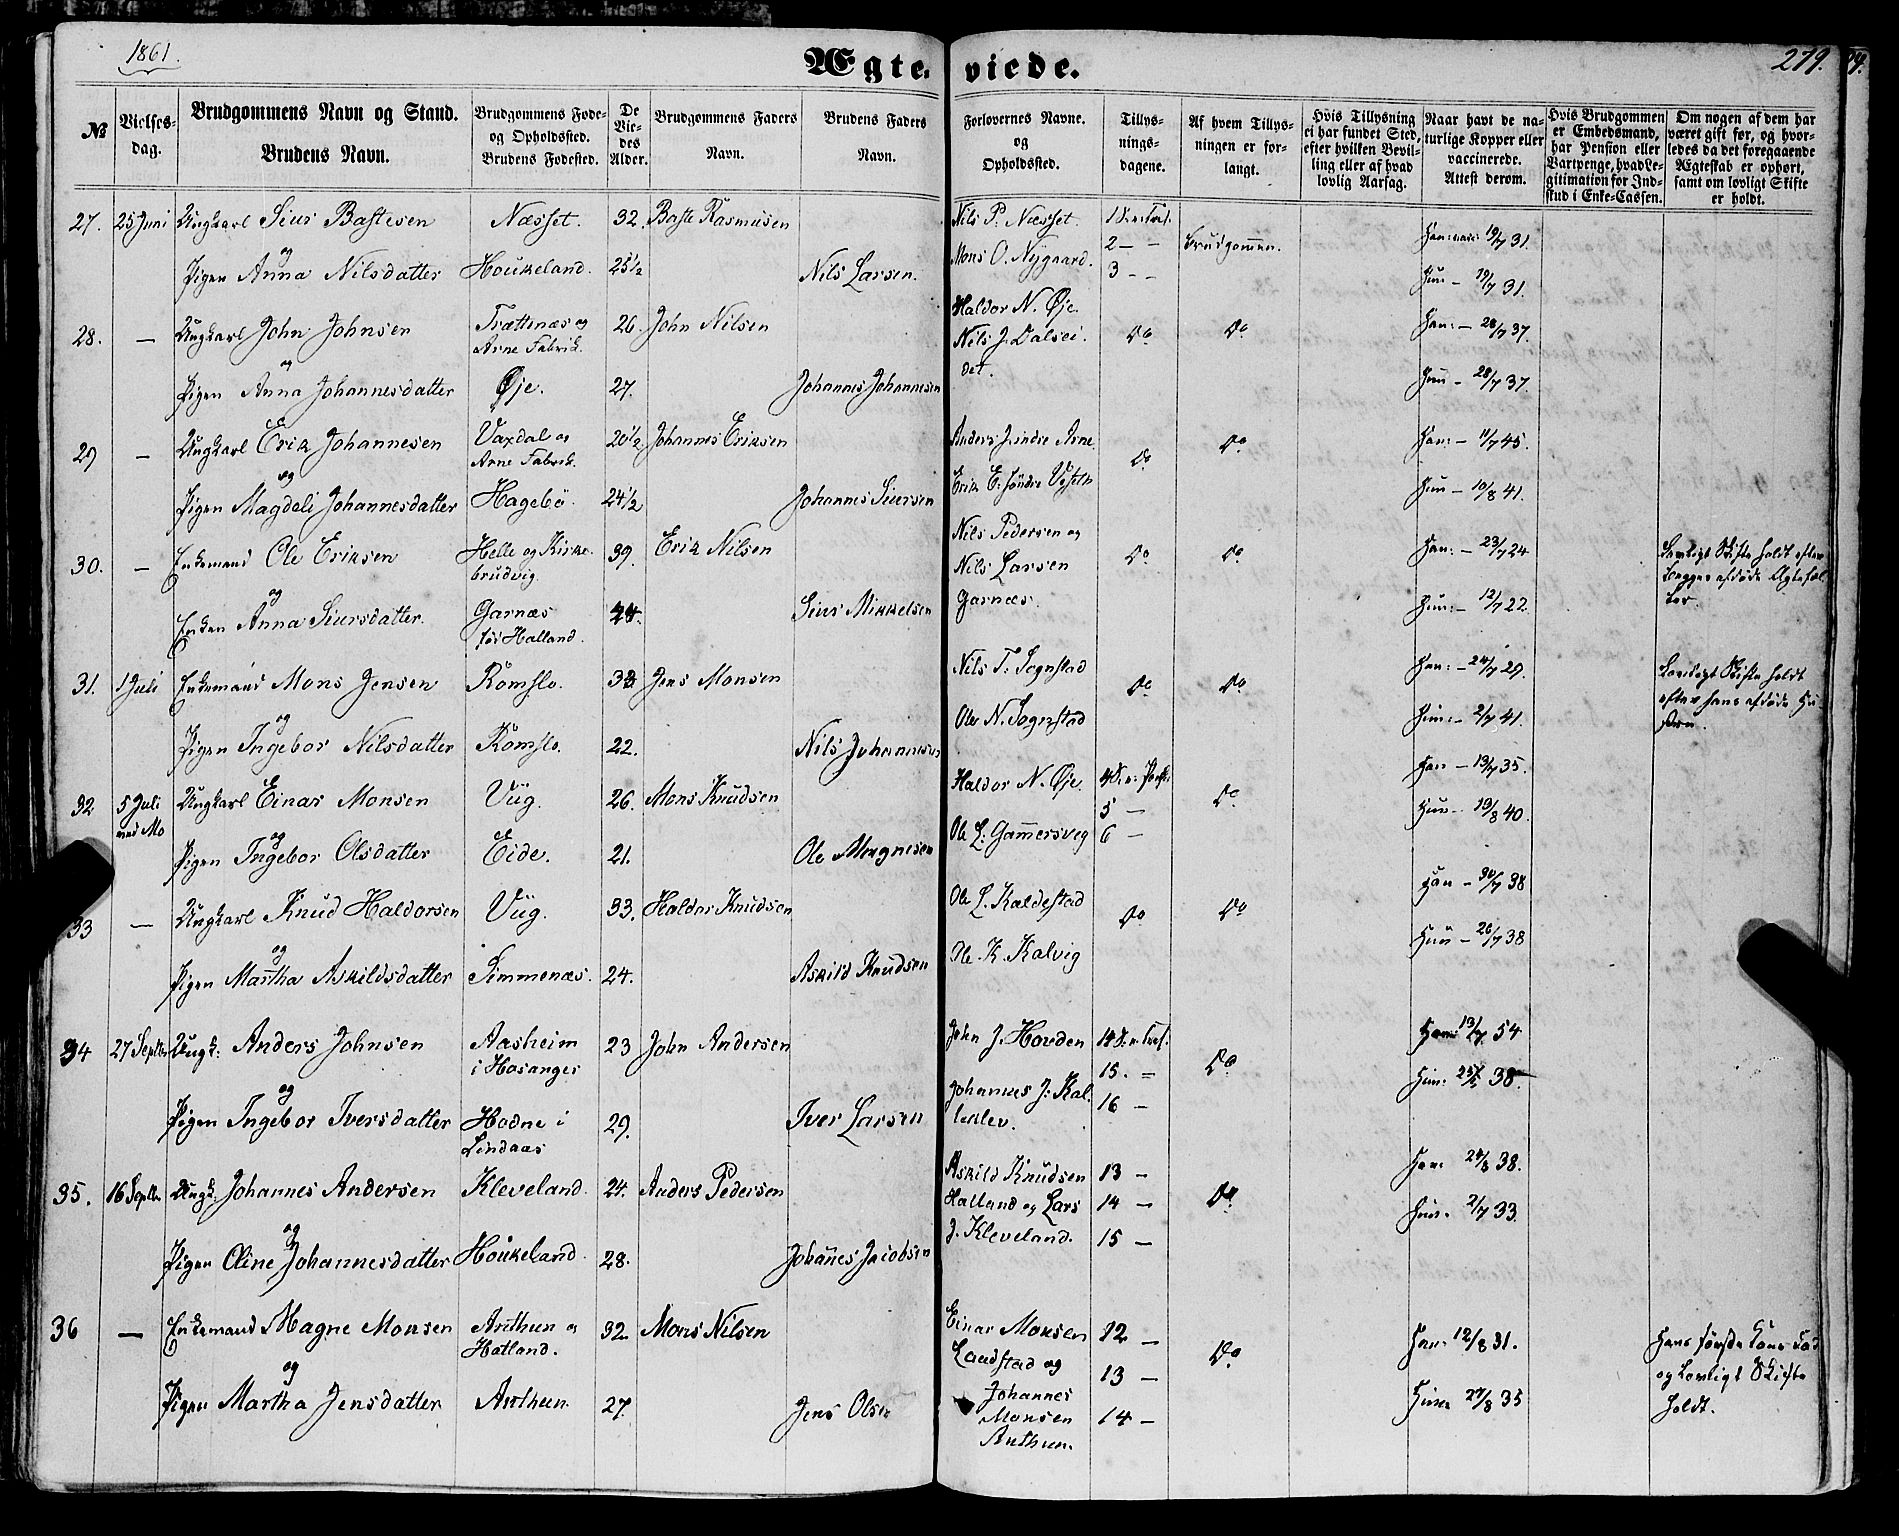 1861.
Ægteviede.
279.
№
Vielses-dag.
Brudgommens Navn og Stand.
Brudens Navn.
Brudgommens Føde- og Opholdssted.
Brudens Fødested.
De Viedes Alder.
Brudgommens Faders Navn.
Brudens Faders Navn.
Forlovernes Navne. og Opholdssted.
Tillysningsdagene.
Af hvem Tillysningen er forlangt.
Hvis Tillysning ei har fundet Sted, efter hvilken Bevilling eller af hvad lovlig Aarsag.
Naar havt de naturlige Kopper eller vaccinerede. Attest derom.
Hvis Brudgommen er Embedsmand, har Pension eller Vartpenge, hvad Legitimation for Indskud i Enke-Cassen.
Om nogen af dem har været gift før, og hvorledes da det foregaaende Ægteskab er ophørt, samt om lovligt Skifte er holdt.
27. 25 Juni Ungkarl Siur Bastesen Næsset. 32. Baste Rasmusen Nils P. Næsset. 1 S. e. Tref. Brudgommen. Han: vacc: 19/7 31.
og Mons O. Nygaard. 2 – –
Pigen Anna Nilsdatter Houkeland. 25½ Nils Larsen. 3 – – Hun – 19/7 31.
28. – Ungkarl John Johnsen Trættenæs og Arne Fabrik. 26. John Nilsen Haldor N. Øje. Do Do Han: – 28/7 37.
og Nils J. Dalseidet.
Pigen Anna Johannesdatter Øje. 27. Johannes Johannesen Hun – 28/7 37.
29 – Ungkarl Erik Johannesen Vaxdal og Arne Fabrik. 20½ Johannes Eriksen Anders Jindre Arne Do Do Han: – 11/7 45.
og Erik E. søndre
Pigen Magdeli Johannesdatter Hagebö. 24½ Johannes Siursen Hun – 10/8 41.
30. – Enkemand Ole Eriksen Helle og Kirkebrudvig. 39. Erik Nilsen Nils Pedersen og Do Do Han: – 23/7 24 Lovligt Skifte holdt efter begges afdøde Ægtefæller.
og Nils Larsen Garnæs.
Enken Anna Siursdatter. Garnæs før Halland. 44. Siur Mikkelsen Hun: – 12/7 22.
31. 1 Juli Enkemand Mons Jensen Römslo. 32 Jens Monsen Nils T: Sognstad Do Do Han: – 24/7 29. Lovligt Skifte holdt efter hans afdøde Hustru.
og Ole N. Sognstad
Pigen Ingebor Nilsdatter Römslo. 22. Nils Johannesen Hun: – 2/7 41.
32 5 Juli Ungkarl Einar Monsen Viig. 26. Mons Knudsen Haldor N. Øje. 4 S. e. Do Han – 19/7 35.
og Ole L: Gammersveg 5 –
Pigen Ingebor Olsdatter Eide. 21. Ole Magnesen 6 – Hun – 19/8 40.
33 – Ungkarl Knud Haldorsen Viig. 33. Haldor Knudsen Ole L. Kaldestad Do Do Han – 30/7 38
og Ole K. Kalvig
Pigen Martha Askildsdatter Simmenæs. 24. Askild Knudsen Hun – 26/7 38
34 27 Septbr Ungk: Anders Johnsen Aasheim i Hosanger 23 John Andersen John J. Hovden 14 S. e. Tref. Do Han: 13/7 54
og 15. –
Pigen Ingebor Iversdatter Hodne i Lindaas 29. Iver Larsen Johannes J: 16 – Hun: 38.
35. 16 Septbr Ungk. Johannes Andersen Kleveland. 24. Anders Pedersen Askild Knudsen 13 – Do Han 24/8 38.
og Halland og Lars 14 –
Pigen Oline Johannesdatter Houkeland. 28. Johañes Jacobsen J. Kleveland. 15 – Hun. 2/7 33.
36 – Enkemand Magne Monsen Anthun og Hatland. 32. Mons Nilsen Einar Monsen 12 – Do Han: 12/8 31. Hans første Kone død og lovligt Skifte holdt.
og Landstad og 13 –
Pigen Martha Jensdatter Anthun. 27. Jens Olsen Johannes Monsen Anthun. 14 – Hun 27/8 35